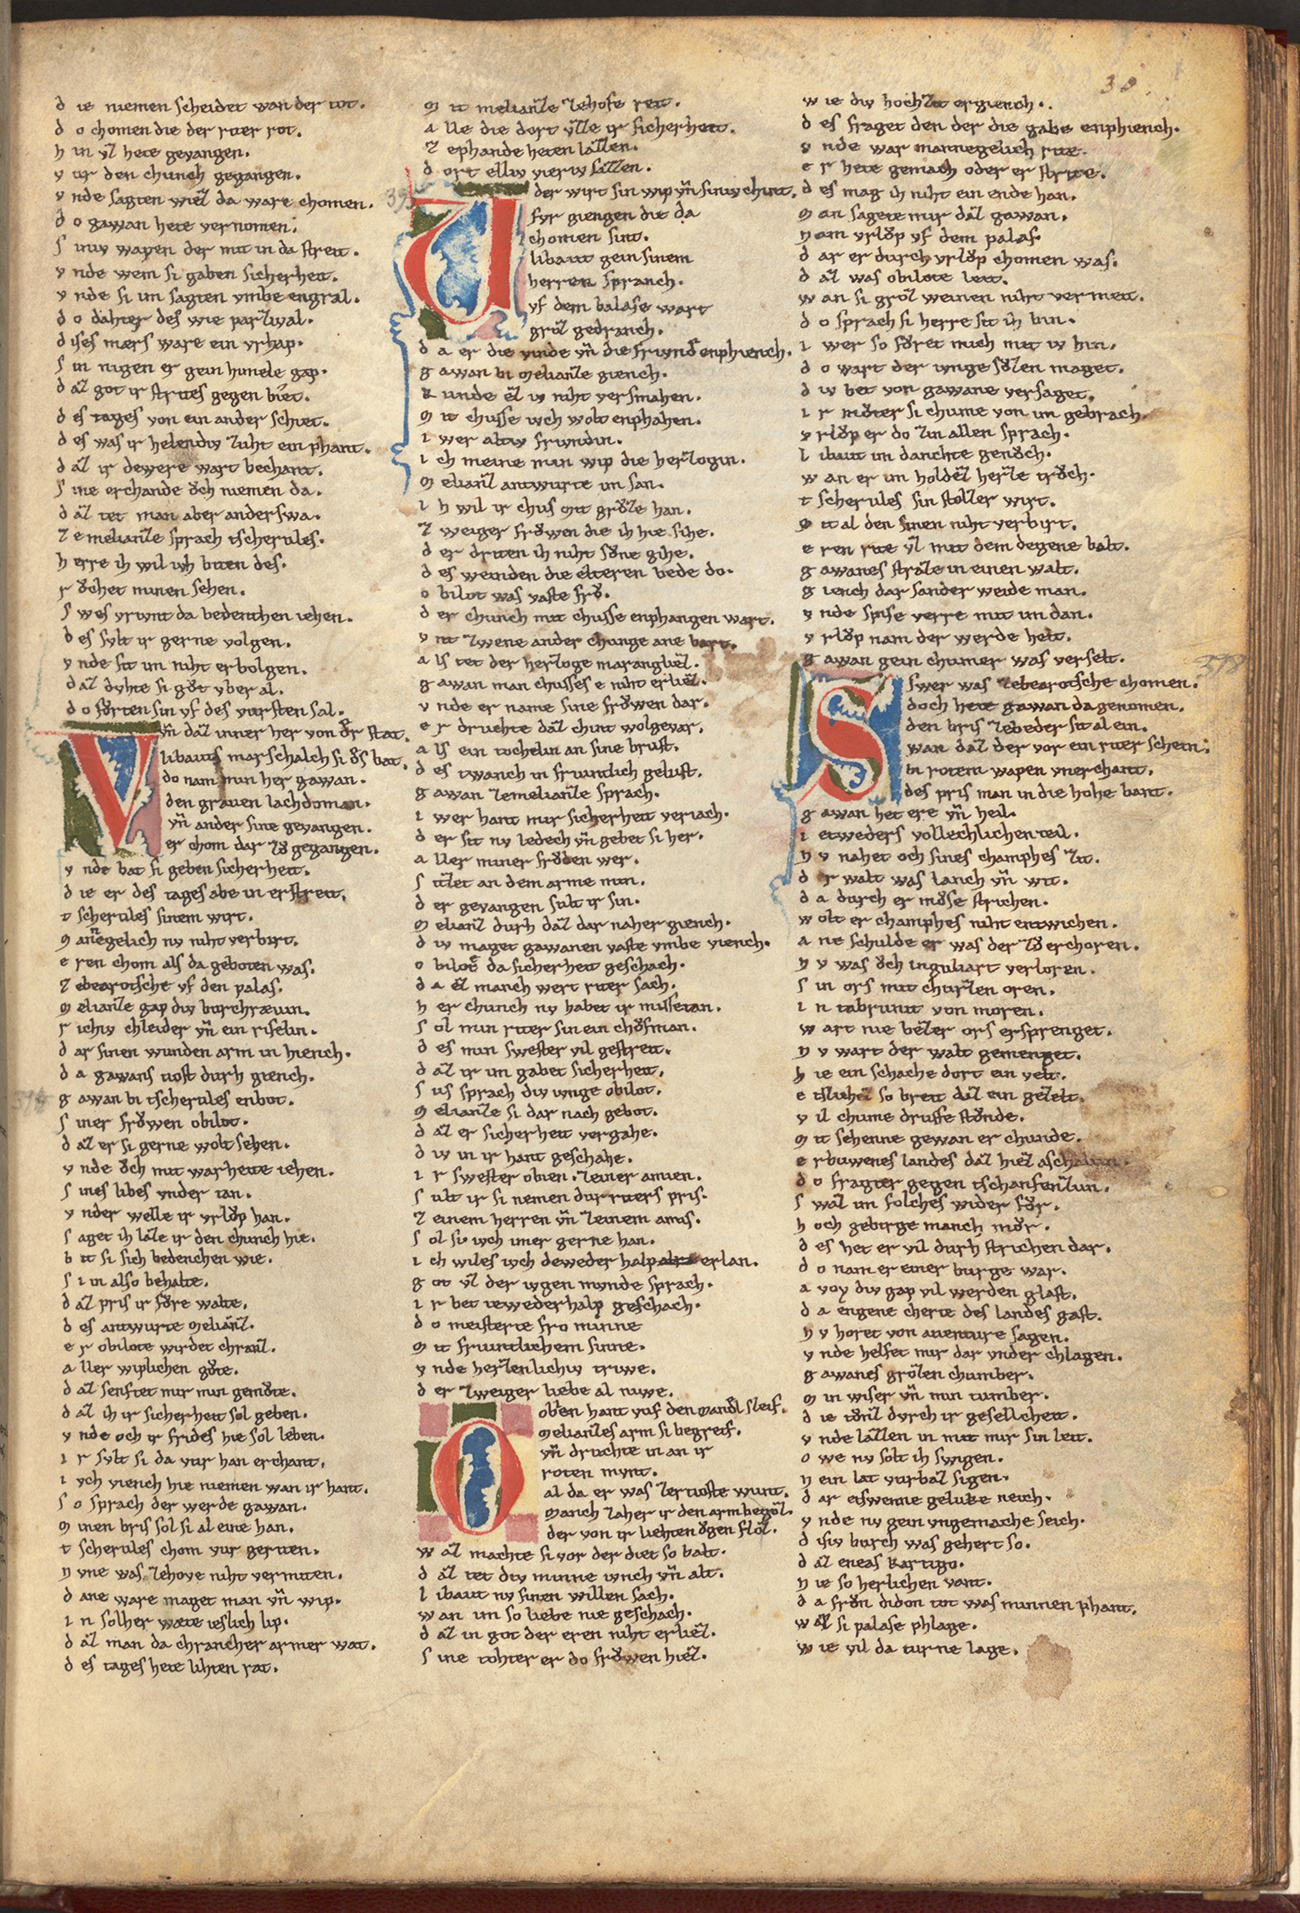 38
d ie niemen scheidet wan der tot.
d o chomen die der riter rot.
h in vz hete gevangen.
v ur den chunch gegangen.
v nde sagten wiez da ware chomen.
d o gawan hete vernomen.
s iniv wapen der mit in da streit.
v nde wem si gaben sicherheit.
v nde si im sagten vmbe engral.
d o dahter des wie parzival.
d ises mærs ware ein vrhap.
s in nigen er gein himele gap.
d az got ir strites gegen biet.
d es tages von ein ander schiet.
d es was ir helendiv zuht ein phant.
d az ir dewere wart bechant.
s ine erchande och niemen da.
d az tet man aber anderswa.
z e melianze sprach tscherules.
h erre ih wil iuh biten des.
r ochet minen sehen.
s wes vriunt da bedenthen iehen.
d es svlt ir gerne volgen.
v nde sit im niht erbolgen.
d az dvhte si got vber al.
d o forten sin vf des vursten sal.
V vn daz inner her von der stat.
libauts marschalch si des bat.
do nam min her gawan.
den graven lachdoman.
vn ander sine gevangen.
er chom dar zo gegangen.
v nde bat si geben sicherheit.
d ie er des tages abe in erstreit.
t scherules sinem wirt.
m annegelich nv niht verbirt.
e ren chom als da geboten was.
z ebearotsche vf den palas.
m elianze gap div burchrævin.
r ichiv chleider vn ein riselin.
d ar sinen wunden arm in hiench.
d a gawans tiost durh giench.
g awan bi tscherules enbot.
s iner frowen obilot.
d az er si gerne wolt sehen.
v nde och mit warheite iehen.
s ines libes vnder tan.
v nder welle ir vrlop han.
s aget ih laze ir den chunch hie.
b it si sich bedenchen wie.
s i in also behalte.
d az pris ir fore walte.
d es antwurte melianz.
e r obilote wirdet chranz.
a ller wiplichen gote.
d az senftet mir min gemote.
d az ih ir sicherheit sol geben.
v nde och ir frides hie sol leben.
i r svlt si da vur han erchant.
i vch viench hie niemen wan ir hant.
s o sprach der werde gawan.
m inen bris sol si al eine han.
t scherules chom vur geriten.
n vne was zehove niht vermiten.
d ane ware maget man vn wip.
i n solher wæte ieslich lip.
d az man da chrancher armer wat.
d es tages hete lihten rat.
m it melianze zehofe reit.
a lle die dort vzze ir sicherheit.
z ephande heten lazzen.
d ort elliv vieriv sazzen.
U der wirt sin wip vn siniv chint.
fvr giengen die da
chomen sint.
libaut gein sinem
herren spranch.
vf dem balase wart
groz gedranch.
d a er die vinde vn die friunde enphiench.
g awan bi melianze giench.
k unde ez iv niht versmahen.
m it chusse vch wolt enphahen.
i wer altiv friundin.
i ch meine min wip die herzogin.
m elianz antwurte im san.
i h wil ir chus mit groze han.
z weiger frowen die ih hie sihe.
d er driten ih niht sone gihe.
d es weinden die elteren bede do.
o bilot was vaste fro.
d er chunch mit chusse enphangen wart.
v nt zwene ander chunge ane bart.
a ls tet der herzoge marangliez.
g awan man chusses e niht erliez.
v nde er name sine frowen dar.
e r druchte daz chint wolgevar.
a ls ein tochelin an sine brust.
d es twanch in friuntlich gelust.
g awan zemelianze sprach.
i wer hant mir sicherheit veriach.
d er sit nv ledech vn gebet si her.
a ller miner froden wer.
s itzet an dem arme min.
d er gevangen sult ir sin.
m elianz durh daz dar naher giench.
d iv maget gawanen vaste vmbe viench.
o bilot da sicherheit geschach.
d a ez manch wert riter sach.
h er chunch nv habet ir missetan.
s ol min riter sin ein chofman.
d es min swester vil gestreit.
d az ir im gabet sicherheit.
s us sprach div iunge obilot.
m elianze si dar nach gebot.
d az er sicherheit vergahe.
d iv in ir hant geschahe.
i r swester obien. zeiner amien.
s ult ir si nemen durriters pris.
z einem herren vn zeinem amis.
s ol si vch imer gerne han.
i ch wiles vch deweder halp erlan.
g ot vz der ivgen mvnde sprach.
i r bet iewederhalp geschach.
d o meisterte fro minne
m it friuntlichem sinne.
v nde herzenlichiv triwe.
d er zweiger liebe al niwe.
O oben hant vuf den mandl sleif.
melianzes arm si begreif.
vn druchte in an ir
roten mvnt.
al da er was zertioste wunt.
manch zaher ir den arm begoz.
der von ir liehten ogen floz.
w az machte si vor der diet so balt.
d az tet div minne ivnch vn alt.
l ibaut nv sinen willen sach.
w an im so liebe nie geschach.
d az in got der eren niht erliez.
s ine tohter er do frowen hiez.
w ie div hochzit ergiench.
d es fraget den der die gabe enphiench.
v nde war mannegelich rite.
e r hete gemach oder er strite.
d es mag ih niht ein ende han.
m an sagete mir daz gawan.
n am vrlop vf dem palas
d ar er durch vrlop chomen was.
d az was obilote leit.
w an si groz weinen niht vermeit.
d o sprach si herre sit ih bin.
i wer so foret mich mit iv hin.
d o wart der ivnge sozen maget.
d iv bet von gawane versaget.
i r moter si chume von im gebrach.
v rlop er do zin allen sprach.
l ibaut im danchte genoch.
w an er im holdez herze troch.
t scherules sin stolzer wirt.
m it al den sinen niht verbirt.
e ren rite vz mit dem degene balt.
g awanes straze in einen walt.
g iench dar sander weide man.
v nde spise verre mit im dan.
v rlop nam der werde helt.
g awan gein chumer was verselt.
S swer was zebearotsche chomen.
doch hete gawan da genomen.
den bris zebeder sit al ein.
wan daz der vor ein riter schein.
bi rotem wapen vnerchant.
des pris man in die hohe bant.
g awan het ere vn heil.
i etweders vollechlichen teil.
n v nahet och sines champhes zit.
d er walt was lanch vn wit.
d a durch er mose strichen.
w olt er champhes niht entwichen.
a ne schulde er was der zo erchoren.
n v was och inguliart verloren.
s in ors mit churzen oren.
i n tabrunit von moren.
w art nie bezer ors ersprenget.
n v wart der walt gemenget.
h ie ein schache dort ein velt.
e tslichez so breit daz ein gezelt.
v il chume druffe stonde.
m it sehenne gewan er chunde.
e rbuwenes landes daz hiez
d o fragter gegen tschanfenzun.
s waz im folches wider for.
h och gebirge manch mor.
d es het er vil durh strichen dar.
d o nam er einer burge war.
a voy div gap vil werden glast.
d a engene cherte des landes gast.
n v horet von aventure sagen.
v nde helfet mir dar vnder chlagen.
g awanes grozen chumber.
m in wiser vn min tumber.
d ie tonz dvrch ir gesellcheit.
v nde lazzen in mit mir sin leit.
o we nv solt ih swigen.
n ein lat vurbaz sigen.
d ar etswenne gelucke neich.
v nde nv gein vngemache seich.
d isiv burch was gehert so.
d az eneas kartigo.
n ie so herlichen vant.
d a fron didon tot was minnen phant.
w az si palase phlage.
w ie vil da turne lage.